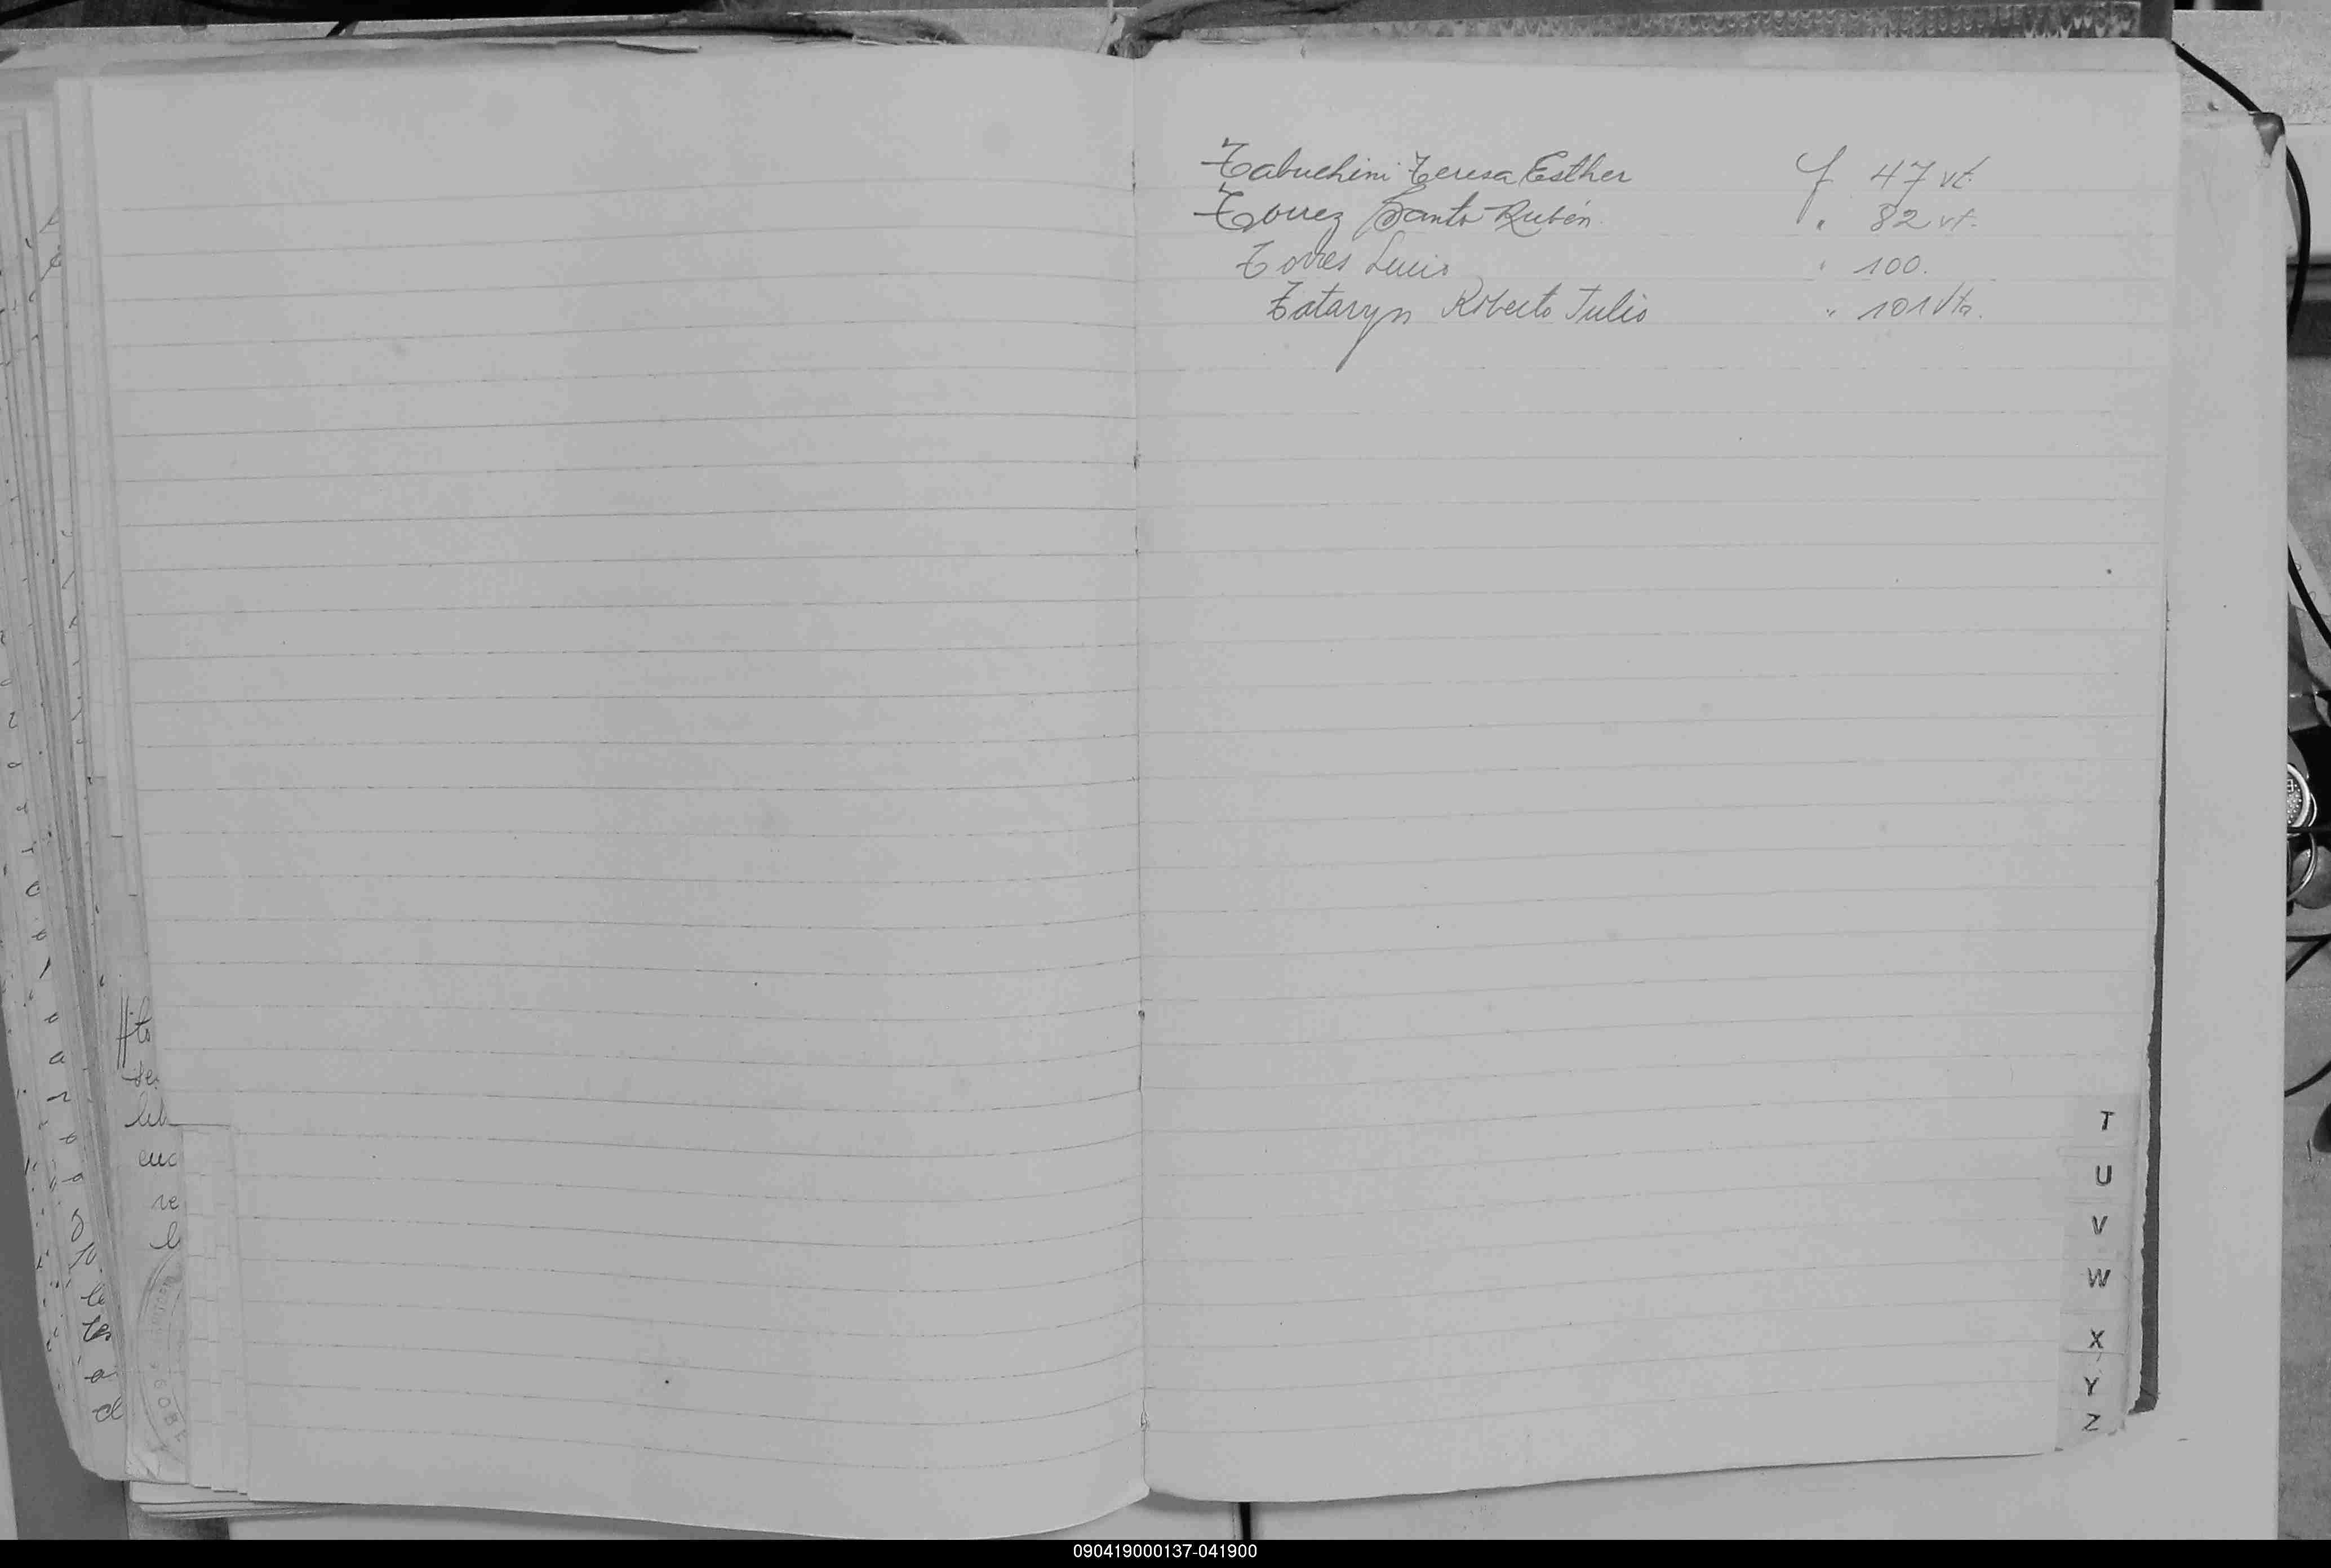 Tabuchini Teresa Esther f 47 vt.
Torrez Santo Rubén. " 82 vt.
Torres Lucio " 100.
Tataryn Roberto Julio " 101 Vta.
to
de
lib
euc
re
l
T
U
V
W
X
Y
Z
090419000137-041900